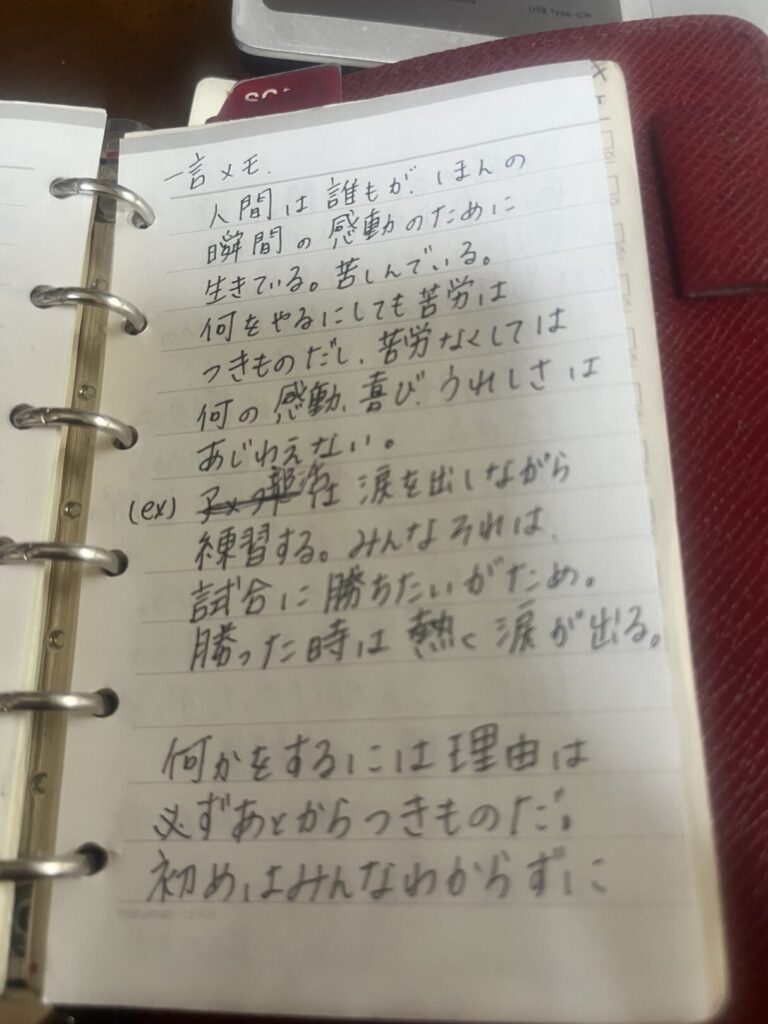 USB Type-C
一言メモ.
人間は誰もが、ほんの
瞬間の感動のために
生きている。苦しんでいる。
何をやるにしても苦労は
つきものだし、苦労なくしては
何の感動、喜び、うれしさは
あじわえない。
(ex) 部活は涙を出しながら
練習する。みんなそれは、
試合に勝ちたいがため。
勝った時は熱く涙が出る。
何かをするには理由は
必ずあとからつきものだ。
初めはみんなわからずに